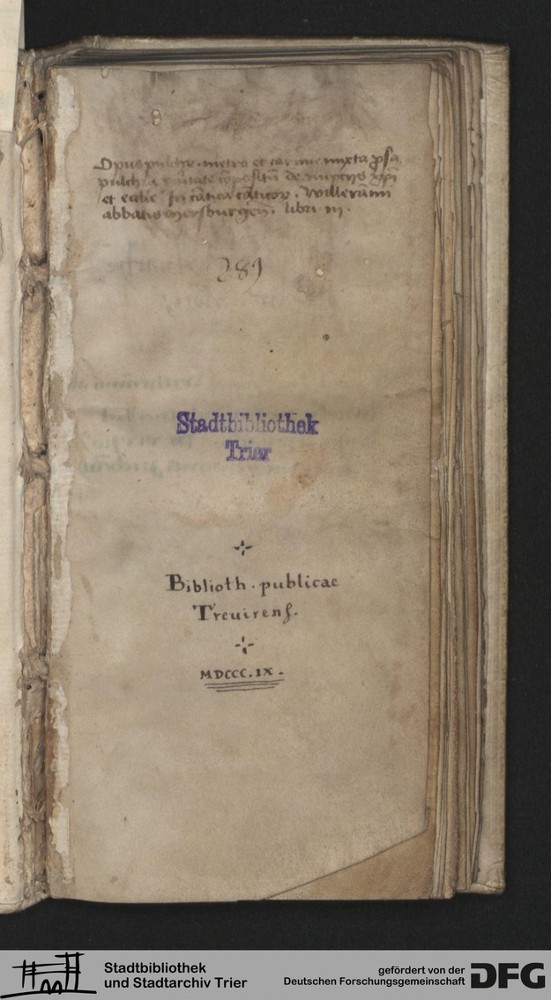 Opus pulchr. metro et carmine mixta prosa
pulchra compositum de nupciis xpi
et eccliē In cātica cāticoꝝ . Willerāmi
abbatis mersburgen̄ . libri iii .
289
Stadtbibliothek
Trier
Biblioth. publicae
Treuirens.
MDCCC.IX.
Stadtbibliothek
und Stadtarchiv Trier
gefördert von der
Deutschen Forschungsgemeinschaft
DFG